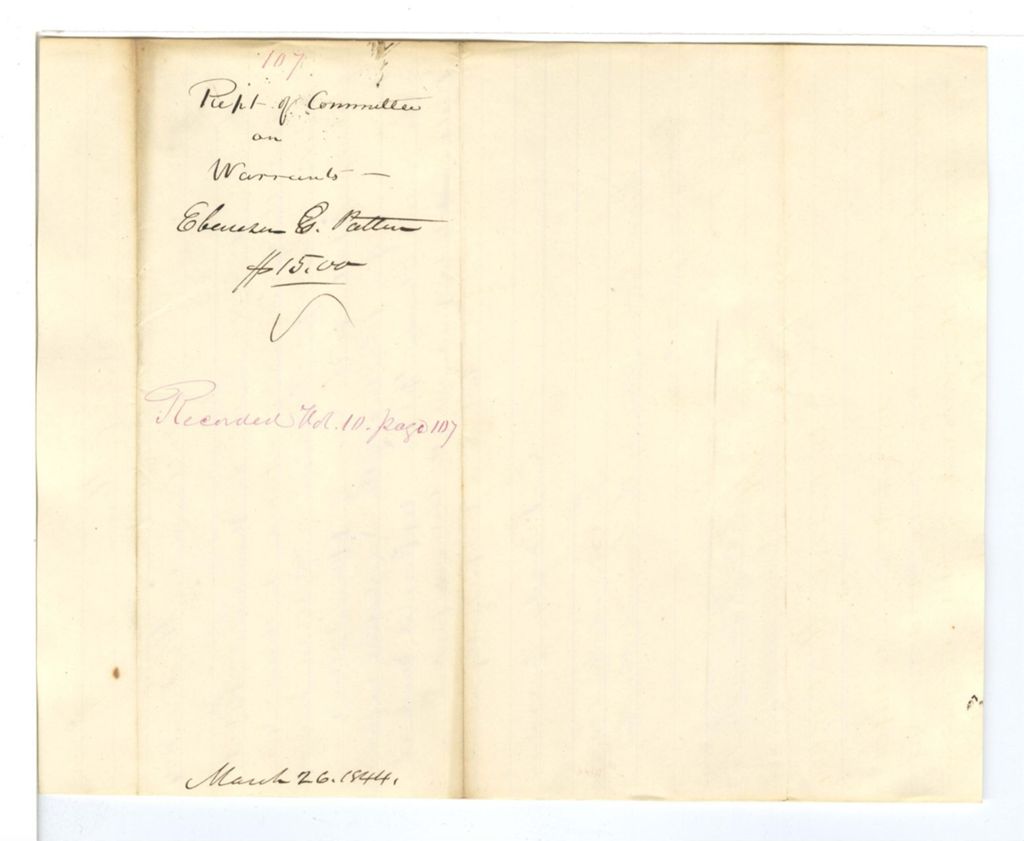 107
Rept of Committee
on
Warrants —
Ebenezer G. Patten
$15.00
Recorded Vol. 10. page 107
March 26. 1844.